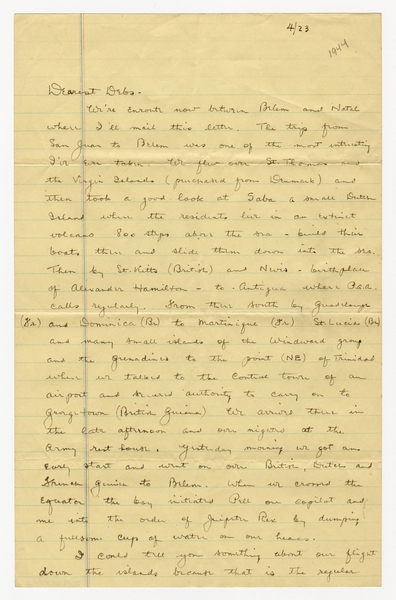 4/23
1944
Dearest Debs -
We're enroute now between Belem and Natal
where I'll mail this letter. The trip from
San Juan to Belem was one of the most interesting
I've ever taken. We flew over St. Thomas and
the Virgin Islands (purchased from Denmark) and
then took a good look at Saba a small Dutch
Island where the residents live in an extinct
volcano 800 steps above the sea - build their
boats there and slide them down into the sea.
Then by St. Kitts (British) and Nevis - birthplace
of Alexander Hamilton - to Antigua where P.A.A.
calls regularly. From there south by Guadeloupe
(Fr) and Dominica (Br) to Martinique (Fr) St. Lucia (Br)
and many small islands of the Windward group
and the Grenadines to the point (NE) of Trinidad
where we talked to the control tower of an
airport and authority to carry on to
Georgetown (British Guiana) We arrived there in
the late afternoon and over nighted at the
Army rest house. Yesterday morning we got an
early start and went on over British, Dutch and
French Guiana to Belem. When we crossed the
Equator the boy initiated Pell our copilot and
me into the order of Jupiter Rex by dumping
a full some cups of water on our heads.
I could tell you something about our flight
down the islands because that is the regular